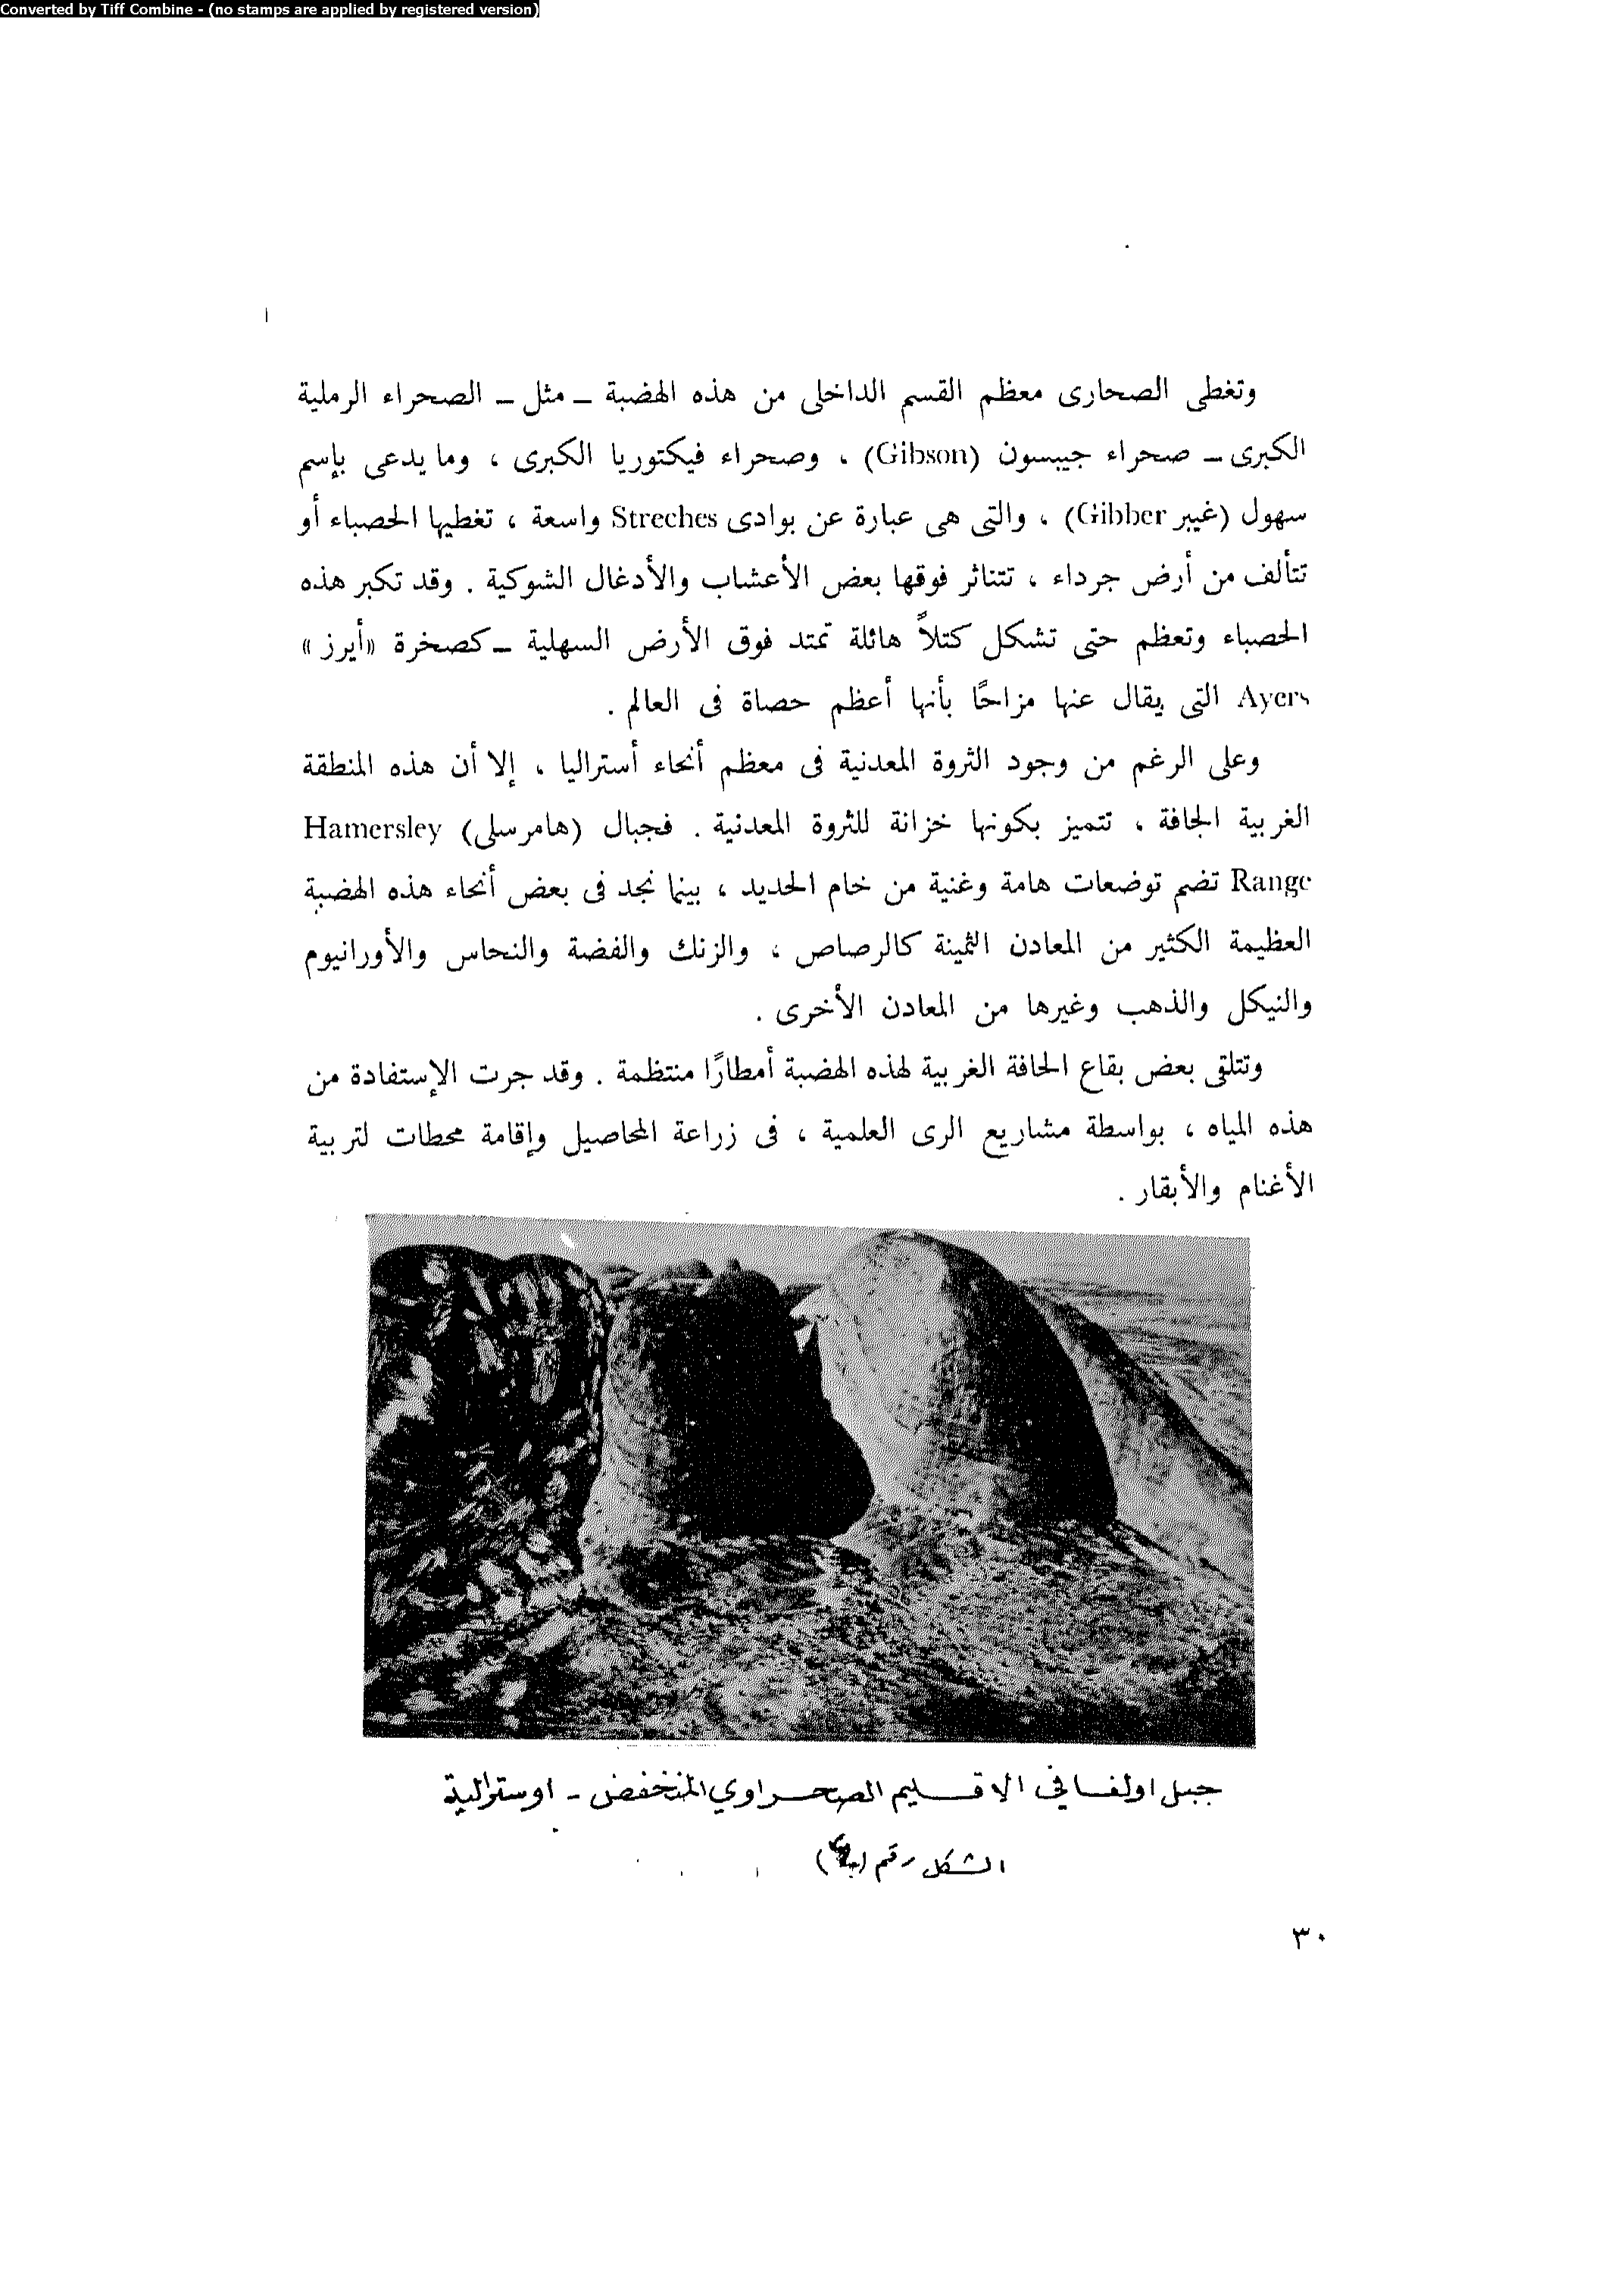 Converted by Tiff Combine - (no stamps are applied by registered version)
وتغطى الصحارى معظم القسم الداخلى من هذه الهضبة – مثل – الصحراء الرملية
الكبرى – صحراء جيبسون (Gibson) ، وصحراء فيكتوريا الكبرى ، وما يدعى بإسم
سهول (غيبر Gibber) ، والتى هى عبارة عن بوادى Streches واسعة ، تغطيها الحصباء أو
تتألف من أرض جرداء ، تتناثر فوقها بعض الأعشاب والأدغال الشوكية . وقد تكبر هذه
الحصباء وتعظم حتى تشكل كتلاً هائلة تمتد فوق الأرض السهلية – كصخرة «أيرز»
Ayers التى يقال عنها مزاحًا بأنها أعظم حصاة فى العالم .
وعلى الرغم من وجود الثروة المعدنية فى معظم أنحاء أستراليا ، إلا أن هذه المنطقة
الغربية الجافة ، تتميز بكونها خزانة للثروة المعدنية . فجبال (هامرسلى) Hamersley
Range تضم توضعات هامة وغنية من خام الحديد ، بينما نجد فى بعض أنحاء هذه الهضبة
العظيمة الكثير من المعادن الثمينة كالرصاص ، والزنك والفضة والنحاس والأورانيوم
والنيكل والذهب وغيرها من المعادن الأخرى .
وتتلقى بعض بقاع الحافة الغربية لهذه الهضبة أمطارًا منتظمة . وقد جرت الإستفادة من
هذه المياه ، بواسطة مشاريع الرى العلمية ، فى زراعة المحاصيل وإقامة محطات لتربية
الأغنام والأبقار .
جبل اولغا في الاقليم الصحراوي المنخفض - اوسترالية
الشكل رقم
٣٠